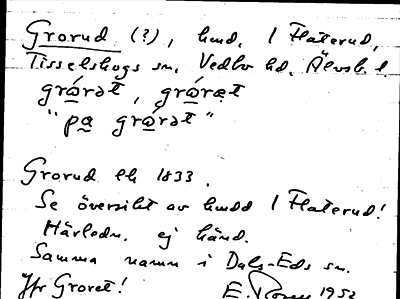 Grorud (?), hmd. 1 Flaterud,
Tisselskogs sn. Vedbo hd. Älvsb. l.
grórət, gróræt
"pa grórət"
Grorud ek 1833.
Se översikt av hmdd 1 Flaterud!
Härledn. ej händ.
Samma namn i Dals-Eds sn.
Jfr Groret! E. 1952